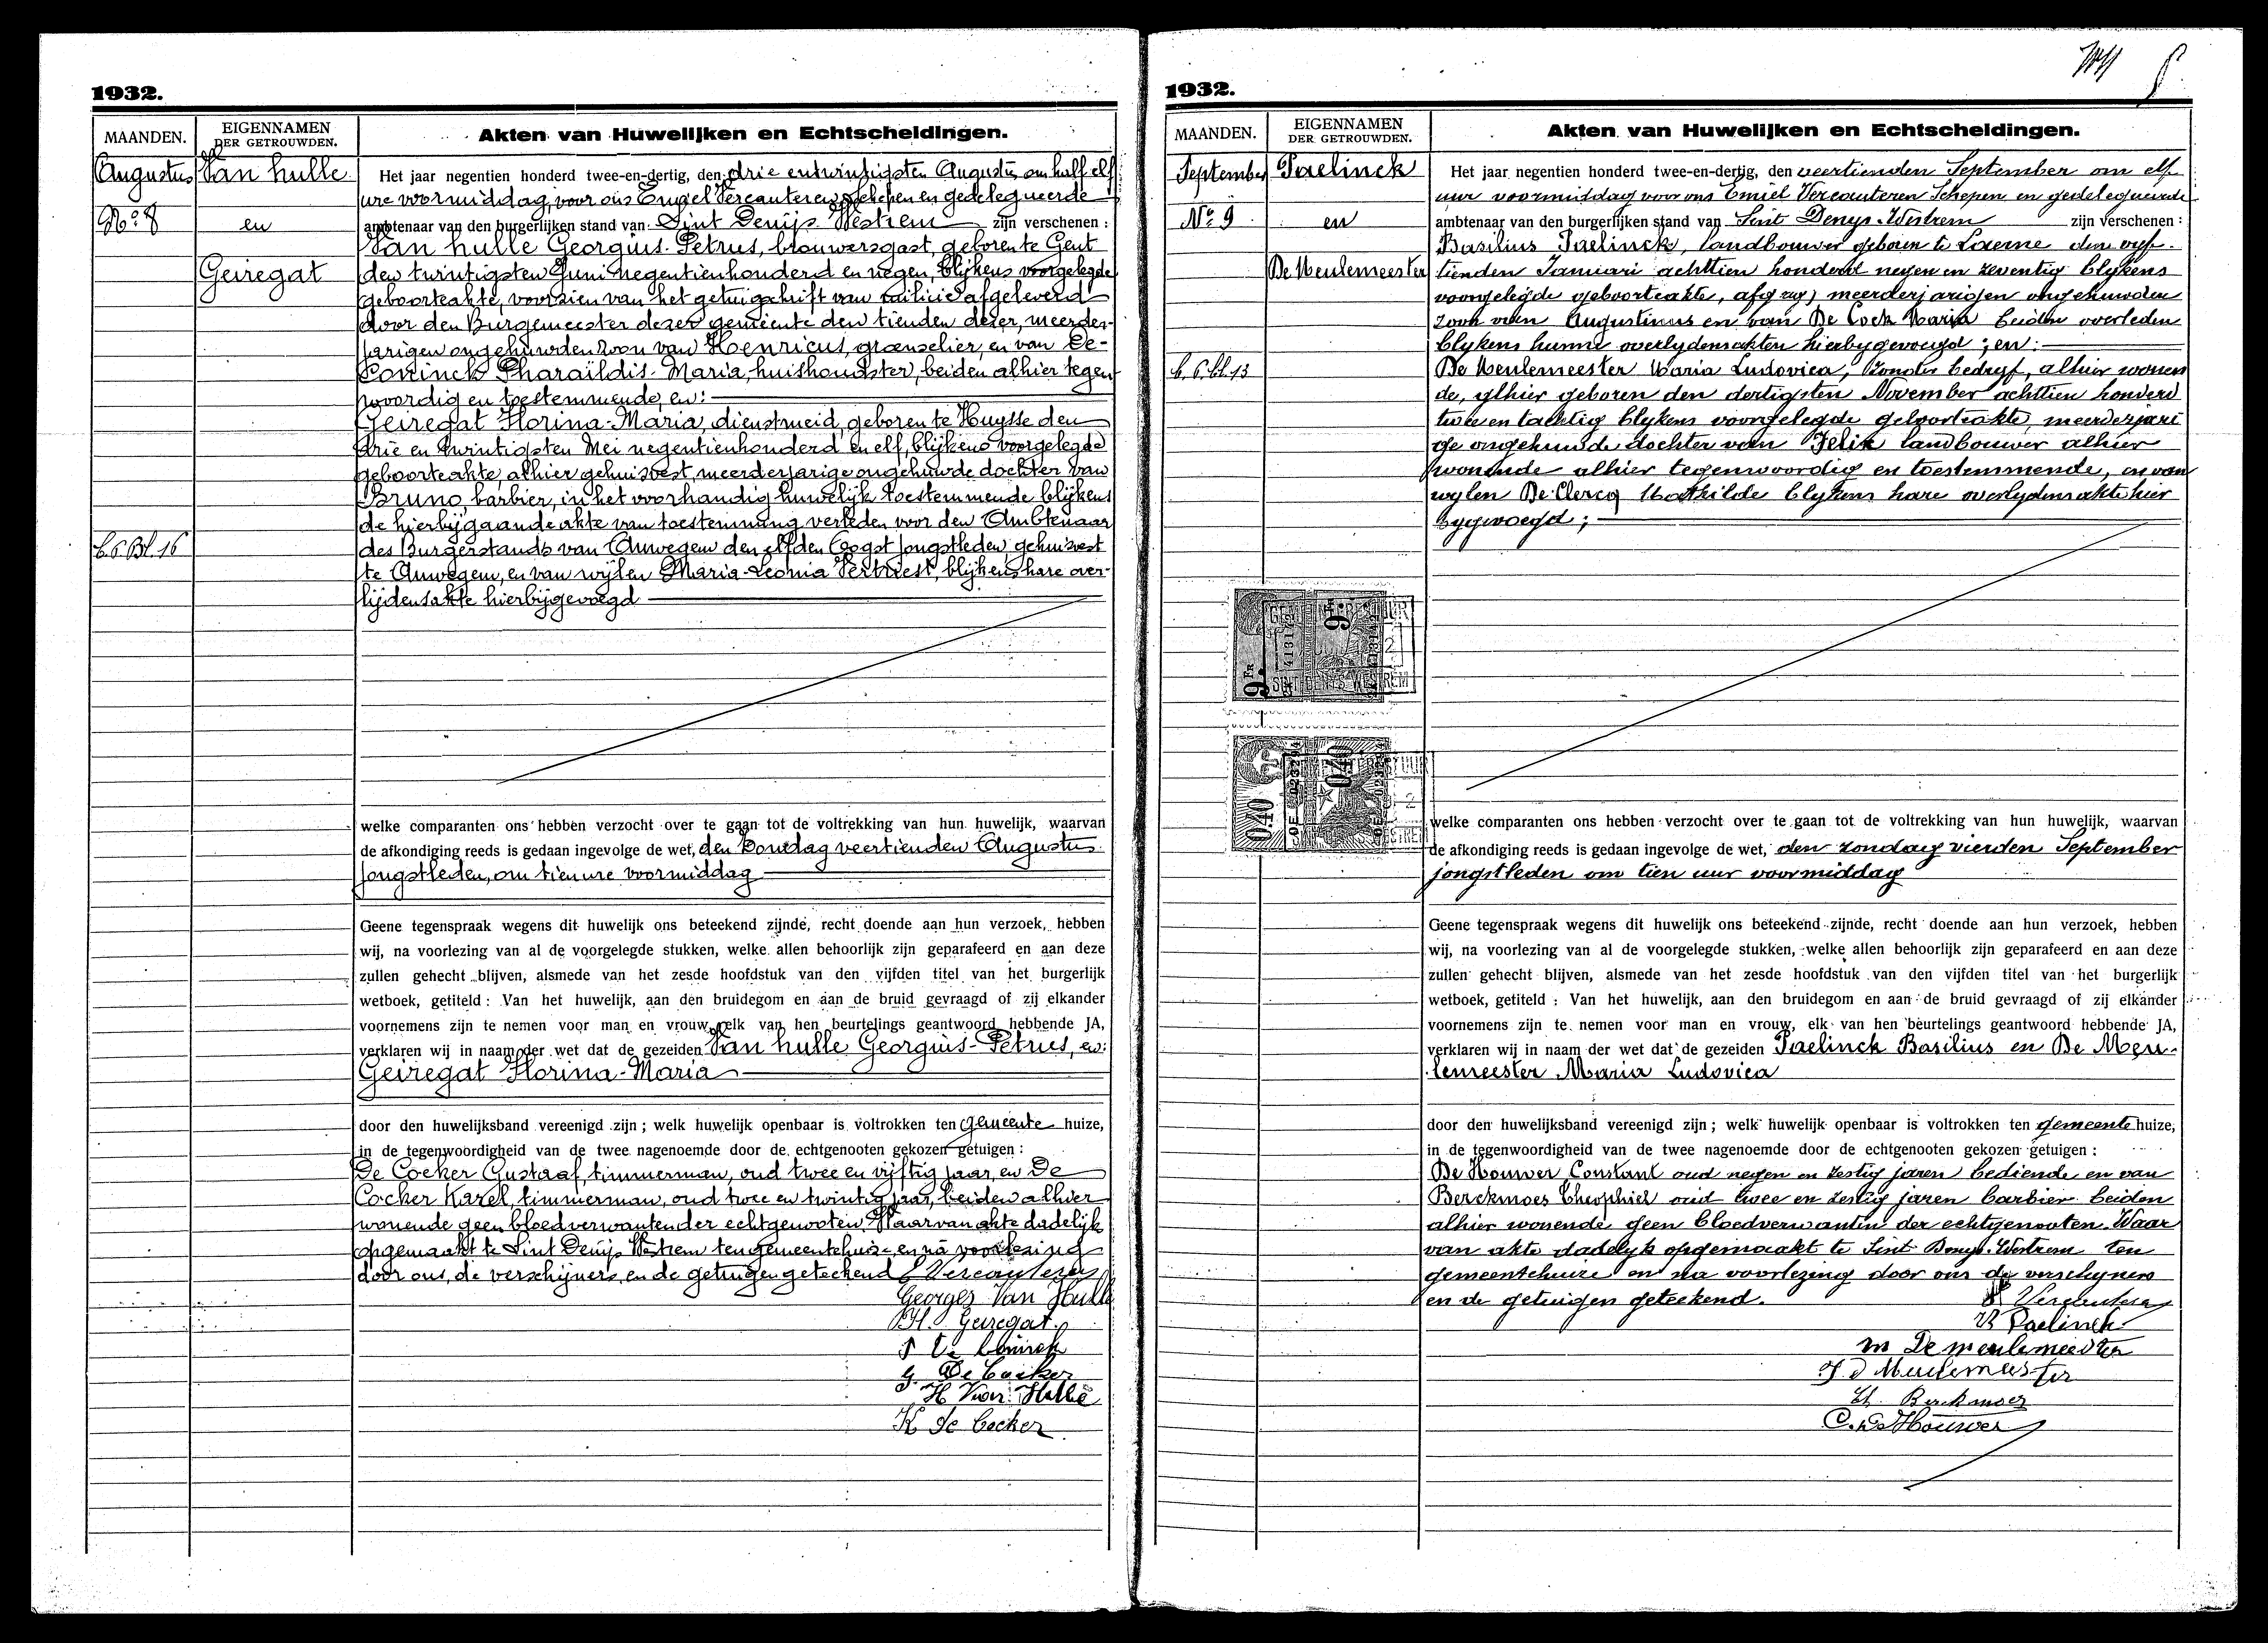 1932.
MAANDEN.
EIGENNAMEN
DER GETROUWDEN.
Akten van Huwelijken en Echtscheidingen.
Augustus
Van hulle
Nº 8
en
Geiregat
Het jaar negentien honderd twee-en-dertig, den drie entwintigsten Augustus om half elf
ure voormiddag, voor ons Emiel Vercauteren schepen en gedelegueerde
ambtenaar van den burgerlijken stand van Sint Denijs Westrem zijn verschenen :
Van hulle Georgius-Petrus, brouwersgast, geboren te Gent
den twintigsten Juni negentienhonderd en negen, blijkens voorgelegde
geboorteakte, voorzien van het getuigschrift van militie afgeleverd
door den Burgemeester dezer gemeente den tienden dezer, meerder-
jarigen ongehuwden zoon van Henricus, graenselier, en van De-
Coninck Pharaïldis-Maria, huishoudster, beiden alhier tegen
woordig en toestemmende, en:
Geiregat Florina-Maria, dienstmeid, geboren te Huysse den
drie en twintigsten Mei negentienhonderd en elf, blijkens voorgelegde
geboorteakte, alhier gehuisvest, meerderjarige ongehuwde dochter van
Bruno, barbier, in het voorhandig huwelijk toestemmende blijkens
de hierbijgaande akte van toestemming verleden voor den Ambtenaar
des Burgerstands van Auwegem den elfden Oogst jongstleden, gehuisvest
b. 6 Bl. 16
te Auwegem, en van wijlen Maria-Leonia Vertriest, blijkens hare over-
lijdensakte hierbijgevoegd
welke comparanten ons hebben verzocht over te gaan tot de voltrekking van hun huwelijk, waarvan
de afkondiging reeds is gedaan ingevolge de wet, den Zondag veertienden Augustus
jongstleden, om tien ure voormiddag
Geene tegenspraak wegens dit huwelijk ons beteekend zijnde, recht doende aan hun verzoek, hebben
wij, na voorlezing van al de voorgelegde stukken, welke allen behoorlijk zijn geparafeerd en aan deze
zullen gehecht blijven, alsmede van het zesde hoofdstuk van den vijfden titel van het burgerlijk
wetboek, getiteld : Van het huwelijk, aan den bruidegom en aan de bruid gevraagd of zij elkander
voornemens zijn te nemen voor man en vrouw, elk van hen beurtelings geantwoord hebbende JA,
verklaren wij in naam der wet dat de gezeiden Van hulle Georgius-Petrus, en:
Geiregat Florina-Maria
door den huwelijksband vereenigd zijn ; welk huwelijk openbaar is voltrokken ten gemeente huize,
in de tegenwoordigheid van de twee nagenoemde door de echtgenooten gekozen getuigen :
De Cocker Gustaaf, timmerman, oud twee en vijftig jaar, en De
Cocker Karel, timmerman, oud twee en twintig jaar, beiden alhier
wonende geen bloedverwanten der echtgenooten. Waarvan akte dadelijk
opgemaakt te Sint Denijs Westrem ten gemeentehuize en na voorlezing
door ons, de verschijners en de getuigen geteekend E Vercauteren
Georges Van Hulle
Fl. Geiregat.
P De Coninck
G. De Cocker
H Van Hulle
K de Cocker
1932.
MAANDEN.
EIGENNAMEN
DER GETROUWDEN.
Akten van Huwelijken en Echtscheidingen.
September
Paelinck
Nº 9
en
De Meulemeester
b. 6. bl. 13
Het jaar negentien honderd twee-en-dertig, den veertienden September om elf
uur voormiddag voor ons Emiel Vercauteren Schepen en gedelegueerde
ambtenaar van den burgerlijken stand van Sint Denys-Westrem zijn verschenen :
Basilius Paelinck, landbouwer geboren te Laerne den vyf-
tienden Januari achttien honderd negen en zeventig blykens
voorgelegde geboorteakte, meerderjarigen ongehuwden
zoon van Augustinus en van De Cock Maria beiden overleden
blykens hunne overlydensakten hierbygevoegd ; en:
De Meulemeester Maria Ludovica, zonder bedryf, alhier wonen
de, alhier geboren den dertigsten November achttien honderd
twee en tachtig blykens voorgelegde geboorteakte, meerderjari
ge ongehuwde dochter van Felix landbouwer alhier
wonende alhier tegenwoordig en toestemmende, en van
wylen De Clercq Mathilde blykens hare overlydensakte hier
bygevoegd ;
9 Fr.
SINT DENYS WESTREM
0.40
welke comparanten ons hebben verzocht over te gaan tot de voltrekking van hun huwelijk, waarvan
de afkondiging reeds is gedaan ingevolge de wet, den zondag vierden September
jongstleden om tien uur voormiddag
Geene tegenspraak wegens dit huwelijk ons beteekend zijnde, recht doende aan hun verzoek, hebben
wij, na voorlezing van al de voorgelegde stukken, welke allen behoorlijk zijn geparafeerd en aan deze
zullen gehecht blijven, alsmede van het zesde hoofdstuk van den vijfden titel van het burgerlijk
wetboek, getiteld : Van het huwelijk, aan den bruidegom en aan de bruid gevraagd of zij elkander
voornemens zijn te nemen voor man en vrouw, elk van hen beurtelings geantwoord hebbende JA,
verklaren wij in naam der wet dat de gezeiden Paelinck Basilius en De Meu-
lemeester Maria Ludovica
door den huwelijksband vereenigd zijn ; welk huwelijk openbaar is voltrokken ten gemeente huize,
in de tegenwoordigheid van de twee nagenoemde door de echtgenooten gekozen getuigen :
De Houwer Constant oud negen en zestig jaren bediende en van
Berckmoes Theophiel oud twee en zestig jaren barbier beiden
alhier wonende geen bloedverwanten der echtgenooten. Waar
van akte dadelyk opgemaakt te Sint Denys-Westrem ten
gemeentehuize en na voorlezing door ons de verschyners
en de getuigen geteekend. E Vercauteren
B Paelinck
m De meulemeester
F D Meulemeester
Th. Berckmoes
C. De Houwer